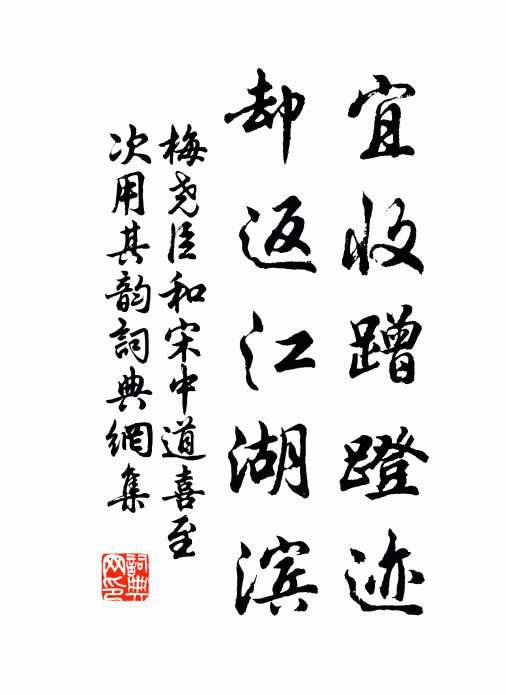 宜收蹭蹬迹
却返江湖滨
梅尧臣和宋中道喜至
次用其韵词典網集
詞典网印